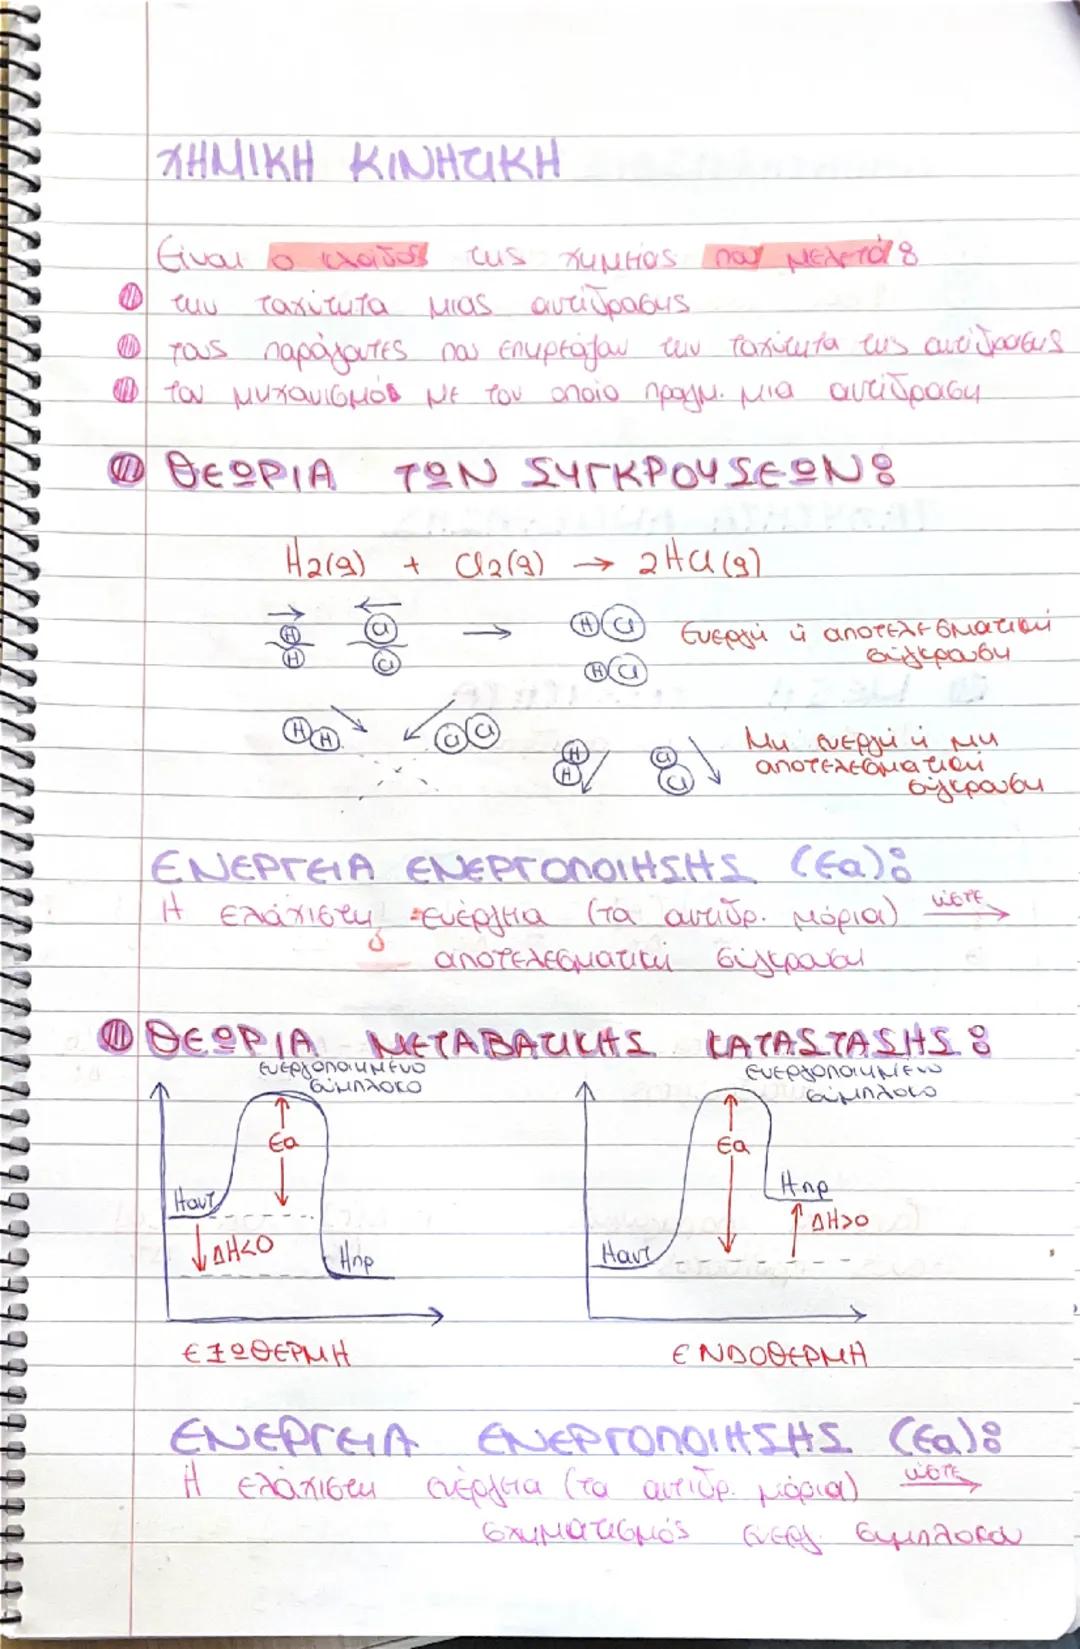 ΧΗΜΙΚΗ ΚΙΝΗΤΙΚΗ
Είναι ο κλάδος της χημείας που μελετά:
την ταχύτητα μιας αντίδρασης
τους παράγοντες που επηρεάζουν την ταχύτητα της αντίδρασης
τον μηχανισμό με τον οποίο πραγμ. μια αντίδραση
ΘΕΩΡΙΑ ΤΩΝ ΣΥΓΚΡΟΥΣΕΩΝ:
H2(g) + Cl2(g) → 2HCl(g)
H Cl → H Cl Ενεργή ή αποτελεσματική
H Cl H Cl σύγκρουση
H H Cl Cl H Cl Μη ενεργή ή μη
H Cl αποτελεσματική
σύγκρουση
ΕΝΕΡΓΕΙΑ ΕΝΕΡΓΟΠΟΙΗΣΗΣ (Ea):
Η ελάχιστη ενέργεια (τα αντιδρ. μόρια) ώστε →
αποτελεσματική σύγκρουση
ΘΕΩΡΙΑ ΜΕΤΑΒΑΤΙΚΗΣ ΚΑΤΑΣΤΑΣΗΣ:
ενεργοποιημένο ενεργοποιημένο
σύμπλοκο σύμπλοκο
Ea Ea
Ηαντ Ηπρ
ΔΗ<0 Ηπρ Ηαντ ΔΗ>0
ΕΞΩΘΕΡΜΗ ΕΝΔΟΘΕΡΜΗ
ΕΝΕΡΓΕΙΑ ΕΝΕΡΓΟΠΟΙΗΣΗΣ (Ea):
Η ελάχιστη ενέργεια (τα αντιδρ. μόρια) ώστε →
σχηματισμός ενεργ. συμπλόκου